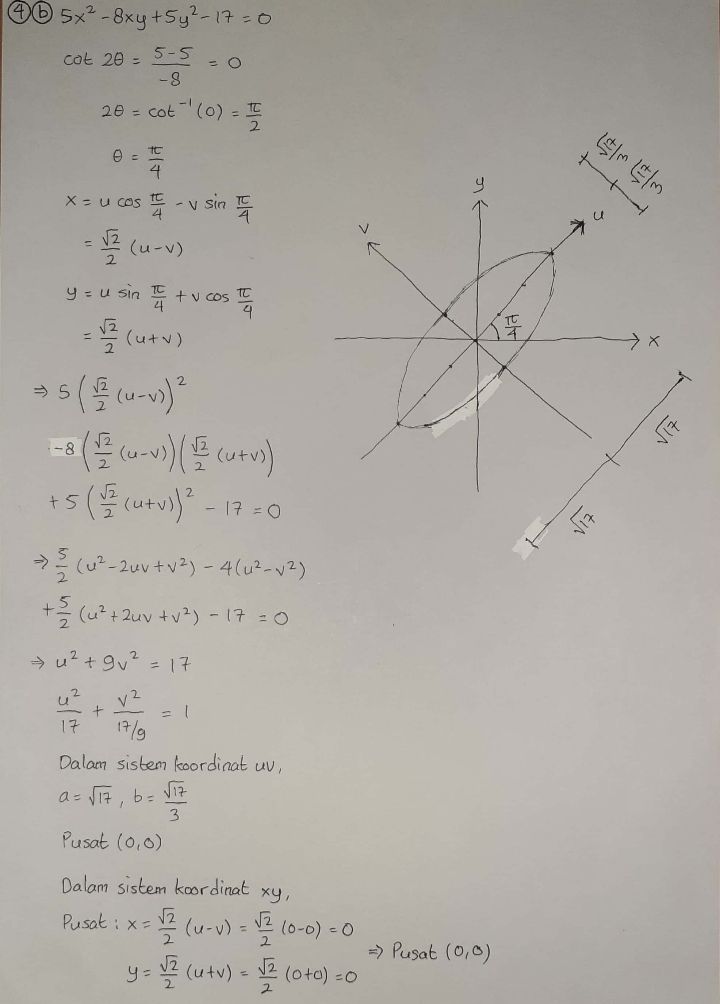 ④ⓑ 5x² - 8xy + 5y² - 17 = 0
cot 2θ = (5-5)/(-8) = 0
2θ = cot⁻¹(0) = π/2
θ = π/4
x = u cos π/4 - v sin π/4
= √2/2 (u-v)
y = u sin π/4 + v cos π/4
= √2/2 (u+v)
⇒ 5(√2/2 (u-v))²
-8(√2/2 (u-v))(√2/2 (u+v))
+5(√2/2 (u+v))² - 17 = 0
⇒ 5/2 (u² - 2uv + v²) - 4(u² - v²)
+5/2 (u² + 2uv + v²) - 17 = 0
⇒ u² + 9v² = 17
u²/17 + v²/(17/9) = 1
Dalam sistem koordinat uv,
a = √17, b = √17/3
Pusat (0,0)
Dalam sistem koordinat xy,
Pusat : x = √2/2 (u-v) = √2/2 (0-0) = 0
y = √2/2 (u+v) = √2/2 (0+0) = 0
⇒ Pusat (0,0)
√17/3
√17/3
y
u
v
π/4
x
√17
√17